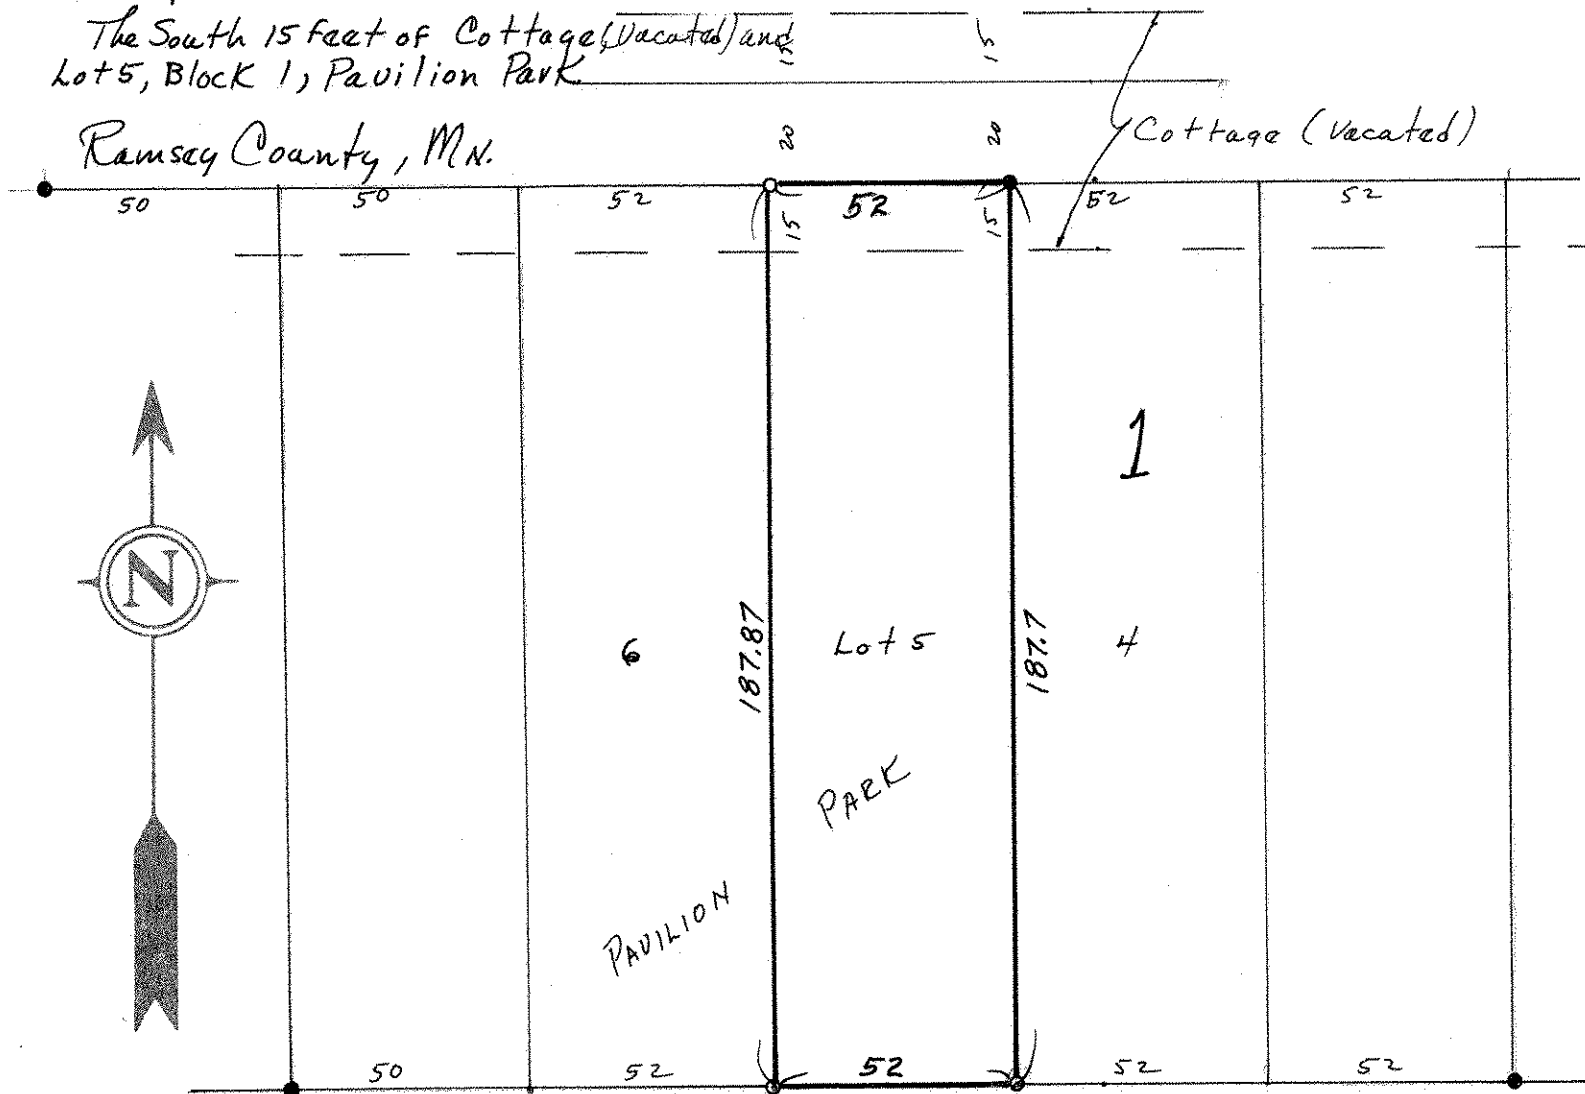 The South 15 feet of Cottage (Vacated) and
15 15
Lot 5, Block 1, Pavilion Park
Ramsey County, MN.
20 20
Cottage (Vacated)
50 50 52 52 52 52
15 15
1
N
6 187.87 Lot 5 187.7 4
PARK
PAVILION
50 52 52 52 52